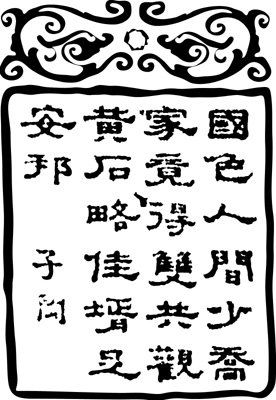 國色人間少喬
家竟得雙共觀
黃石略佳壻足
安邦 子